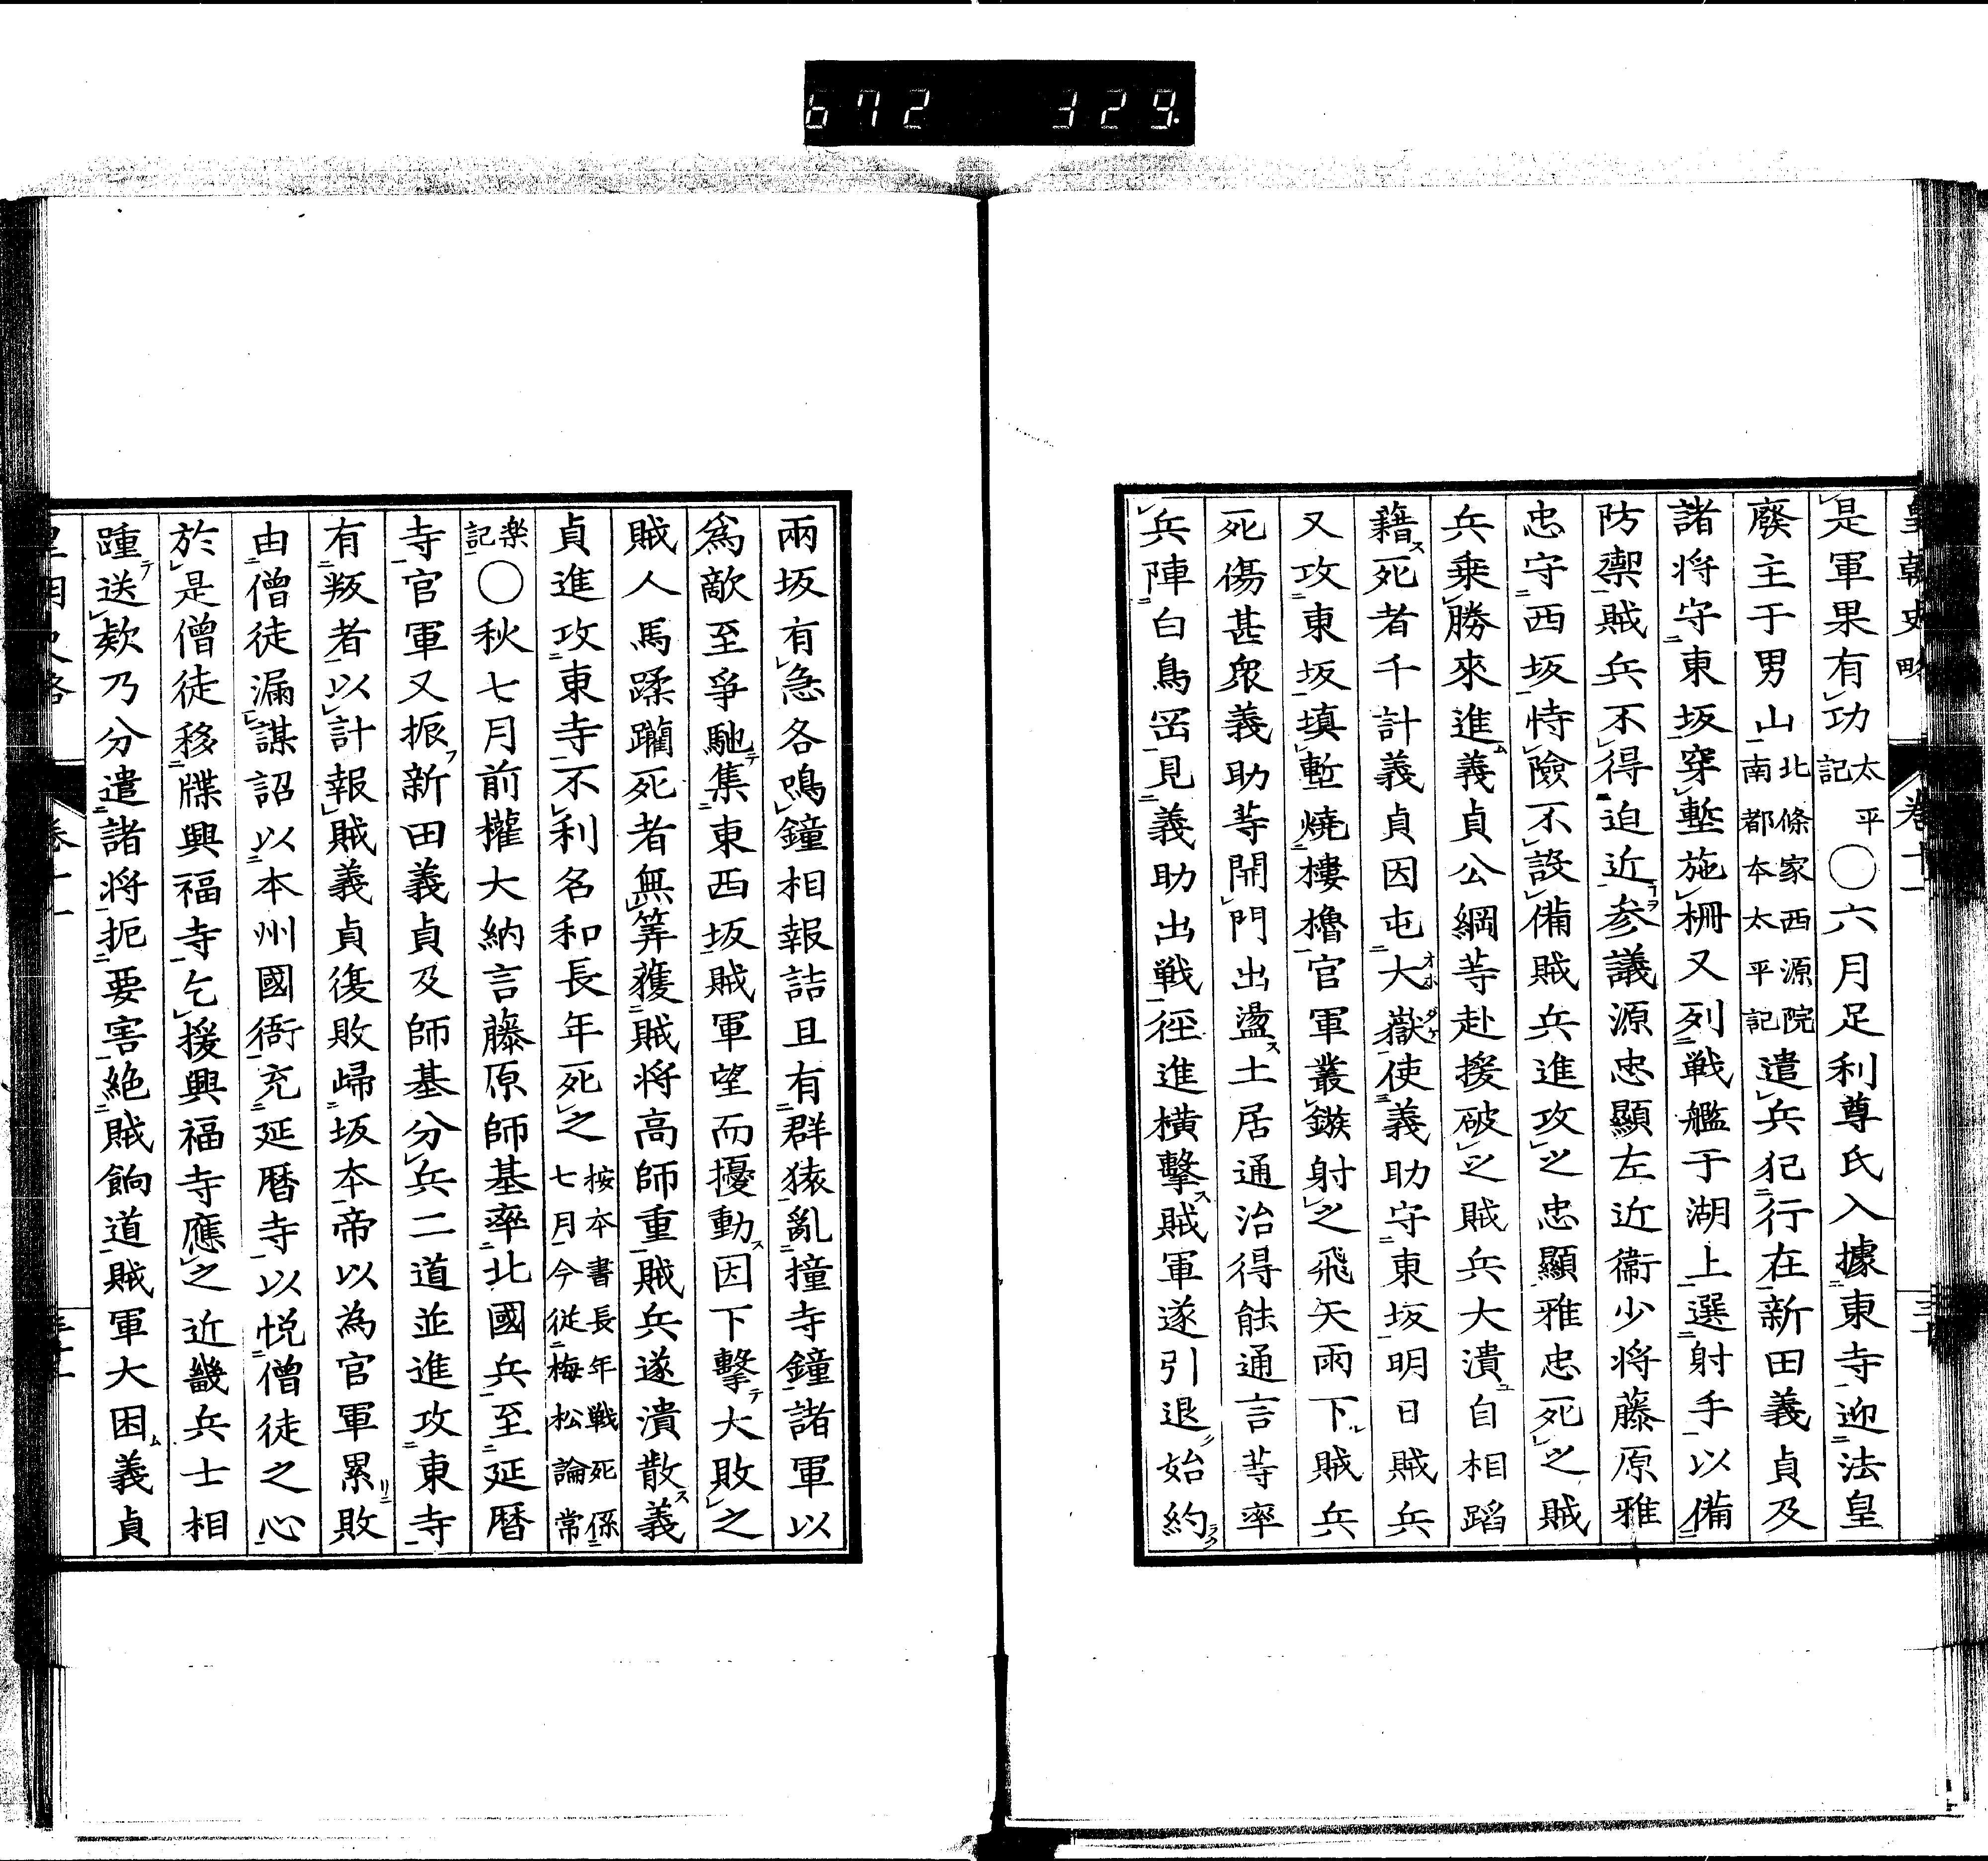 672 329
皇朝史略 卷十一
是軍果有功太平記○六月足利尊氏入據東寺迎法皇
廢主于男山北條家西源院南都本太平記遣兵犯行在新田義貞及
諸将守東坂穿塹施柵又列戦艦于湖上選射手以備
防禦賊兵不得迫近参議源忠顯左近衞少将藤原雅
忠守西坂恃險不設備賊兵進攻之忠顯雅忠死之賊
兵乗勝來進義貞公綱等赴援破之賊兵大潰自相蹈
藉死者千計義貞因屯大嶽使義助守東坂明日賊兵
又攻東坂填塹燒樓櫓官軍叢鏃射之飛矢雨下賊兵
死傷甚衆義助等開門出盪土居通治得能通言等率
兵陣白鳥岡見義助出戦徑進横擊賊軍遂引退始約
兩坂有急各鳴鐘相報詰且有群猿亂撞寺鐘諸軍以
爲敵至爭馳集東西坂賊軍望而擾動因下擊大敗之
賊人馬蹂躪死者無筭獲賊将高師重賊兵遂潰散義
貞進攻東寺不利名和長年死之按本書長年戦死係七月今從梅松論常
楽記○秋七月前權大納言藤原師基率北國兵至延暦
寺官軍又振新田義貞及師基分兵二道並進攻東寺
有叛者以計報賊義貞復敗歸坂本帝以為官軍累敗
由僧徒漏謀詔以本州國衙充延暦寺以悦僧徒之心
於是僧徒移牒興福寺乞援興福寺應之近畿兵士相
踵送欵乃分遣諸将扼要害絶賊餉道賊軍大困義貞